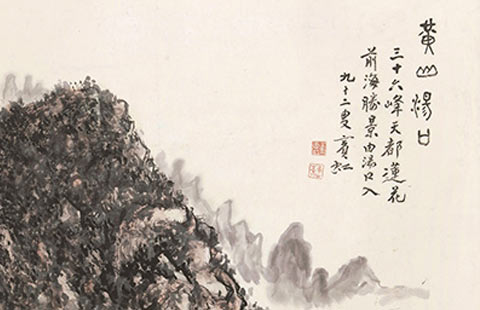 黃山湯口
三十六峰天都蓮花
前海勝景由湯口入
九十二叟賓虹